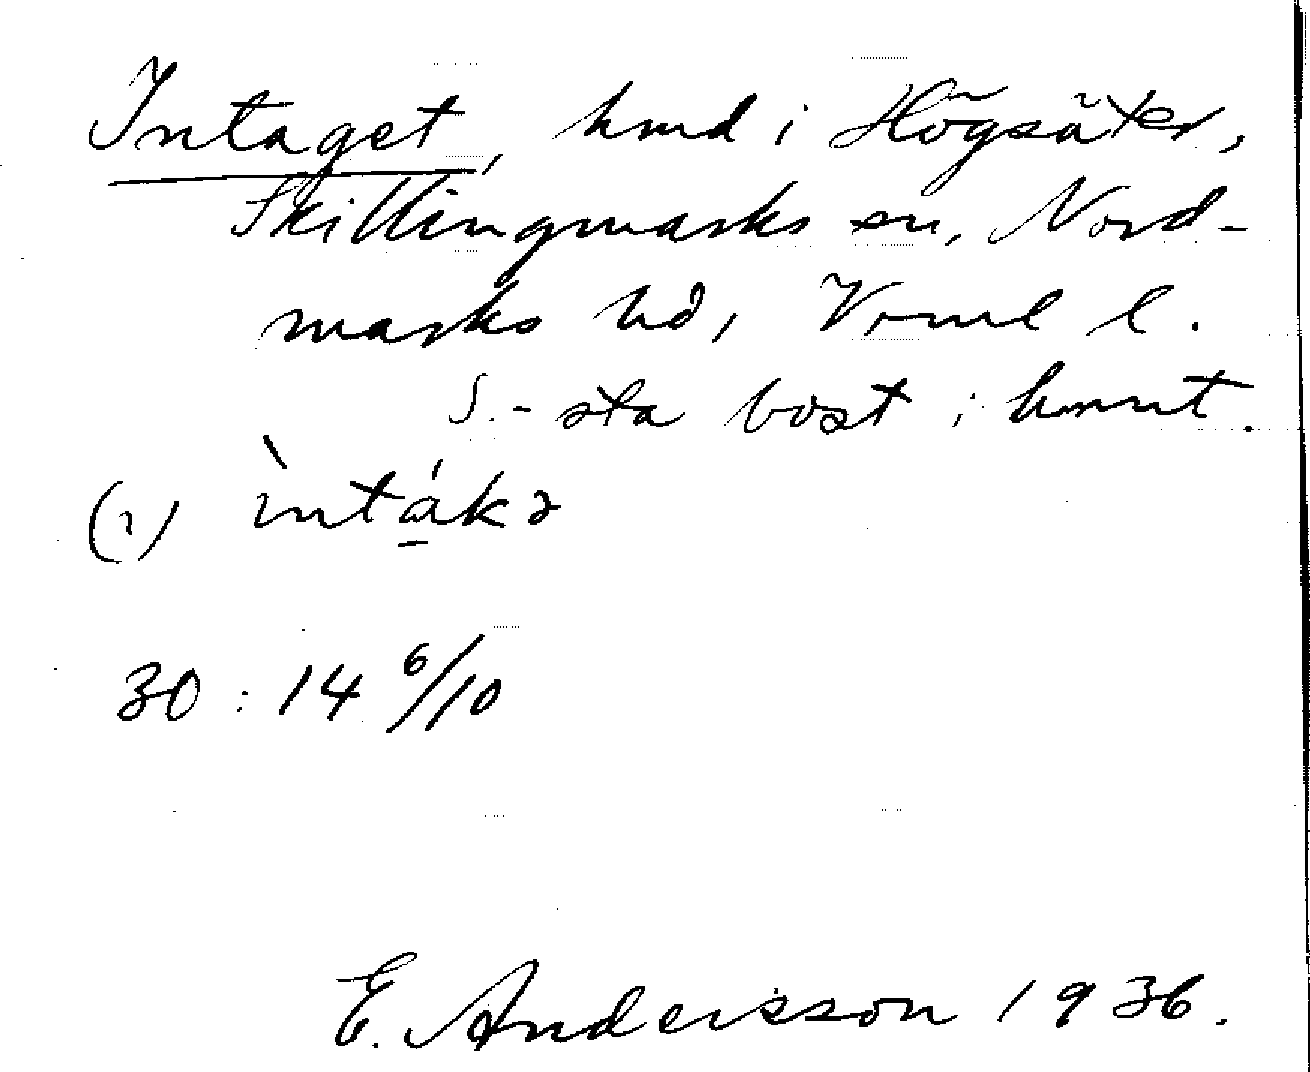 Intaget, hmd i Högsäter,
Skillingmarks sn, Nord-
marks hd, Verml l.
S.-sta bost i hmnt.
(1) ìntákə
30 : 14 6/10
E. Andersson 1936.